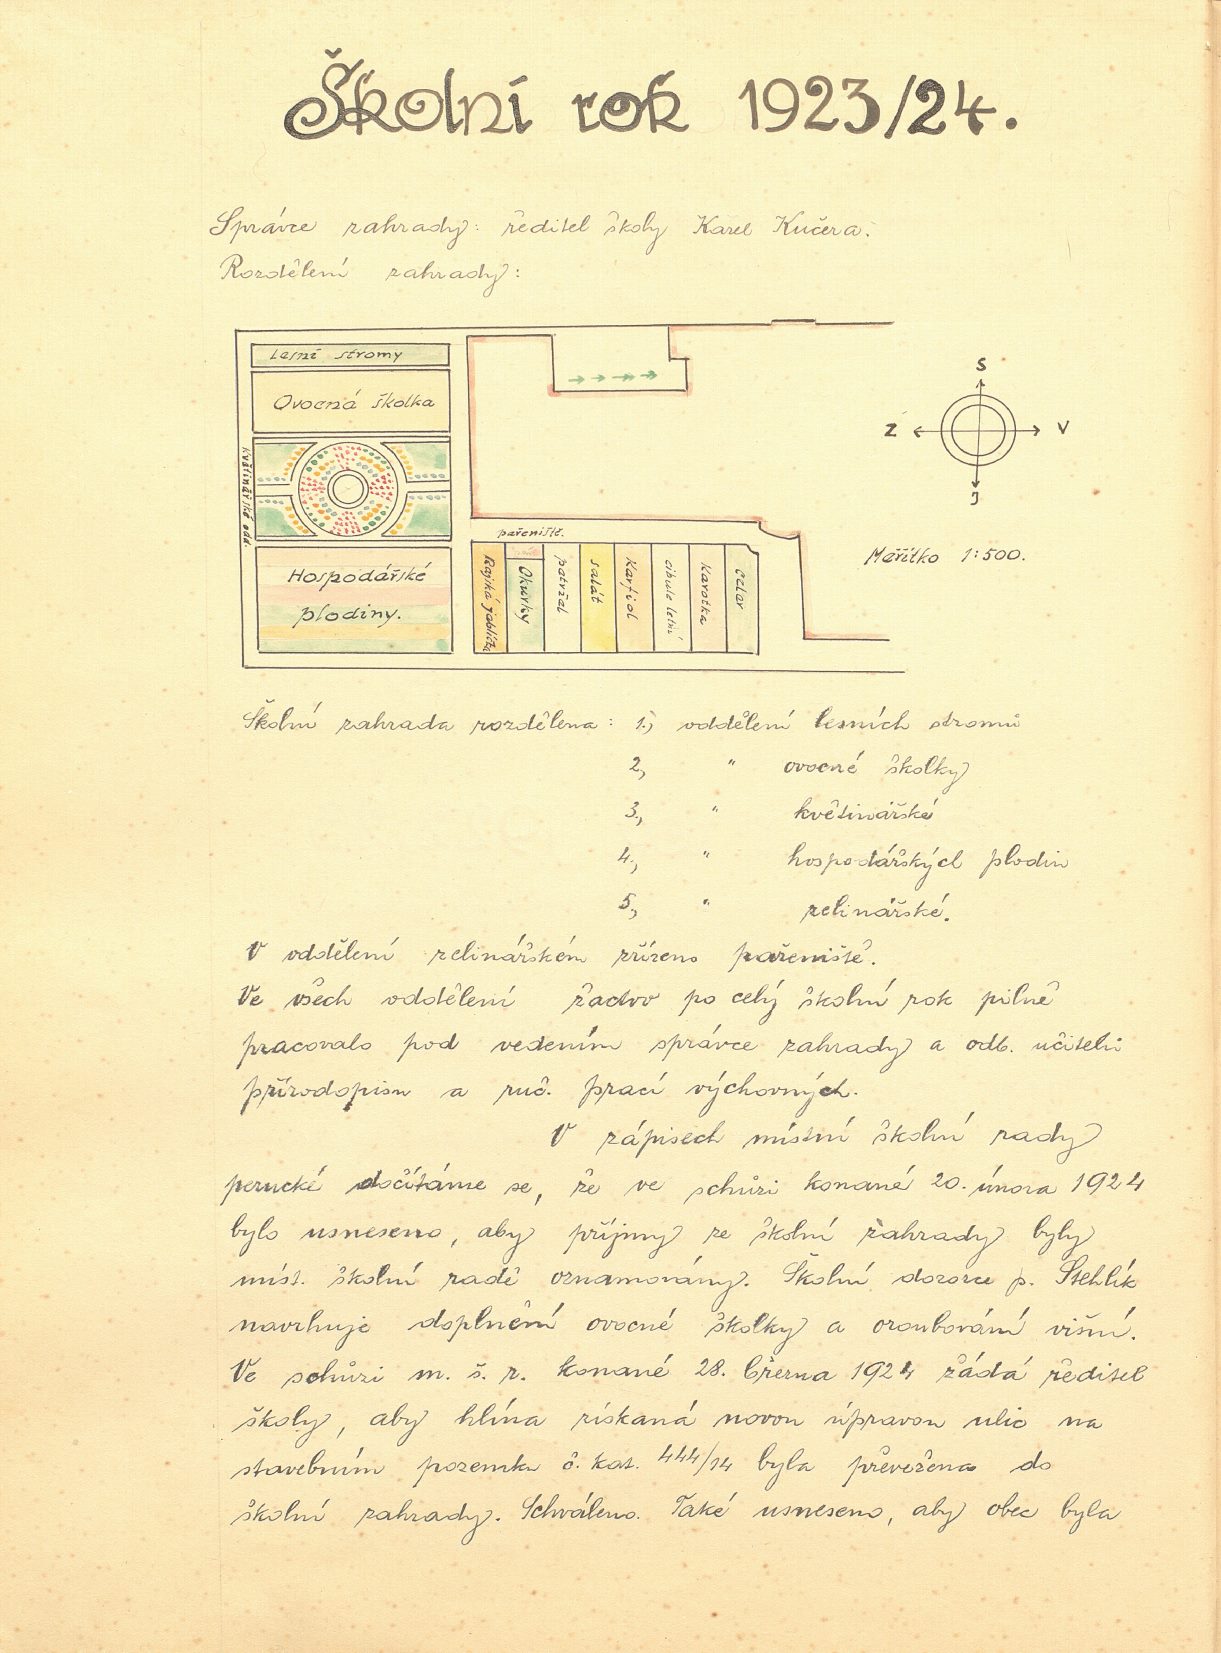 Školní rok 1923/24.
Správce zahrady: ředitel školy Karel Kučera.
Rozdělení zahrady:
Lesní stromy
Ovocná školka
Květinářské odd.
Hospodářské
plodiny.
pařeniště.
Rajská jablíčka
Okurky
petržel
salát
Karfiol
cibule letní
Karotka
celer
S
Z
V
J
Měřítko 1:500.
Školní zahrada rozdělena: 1.) oddělení lesních stromů
2.) " ovocné školky
3.) " květinářské
4.) " hospodářských plodin
5.) " zelinářské.
V oddělení zelinářském zřízeno pařeniště.
Ve všech oddělení žactvo po celý školní rok pilně
pracovalo pod vedením správce zahrady a odb. učitelů
přírodopisu a ruč. prací výchovných.
V zápisech místní školní rady
perucké dočítáme se, že ve schůzi konané 20. února 1924
bylo usneseno, aby příjmy ze školní zahrady byly
míst. školní radě oznamovány. Školní dozorce p. Stehlík
navrhuje doplnění ovocné školky a oroubování višní.
Ve schůzi m. š. r. konané 28. března 1924 žádá ředitel
školy, aby hlína získaná novou úpravou ulic na
stavebním pozemku č. kat. 444/14 byla převežena do
školní zahrady. Schváleno. Také usneseno, aby obec byla